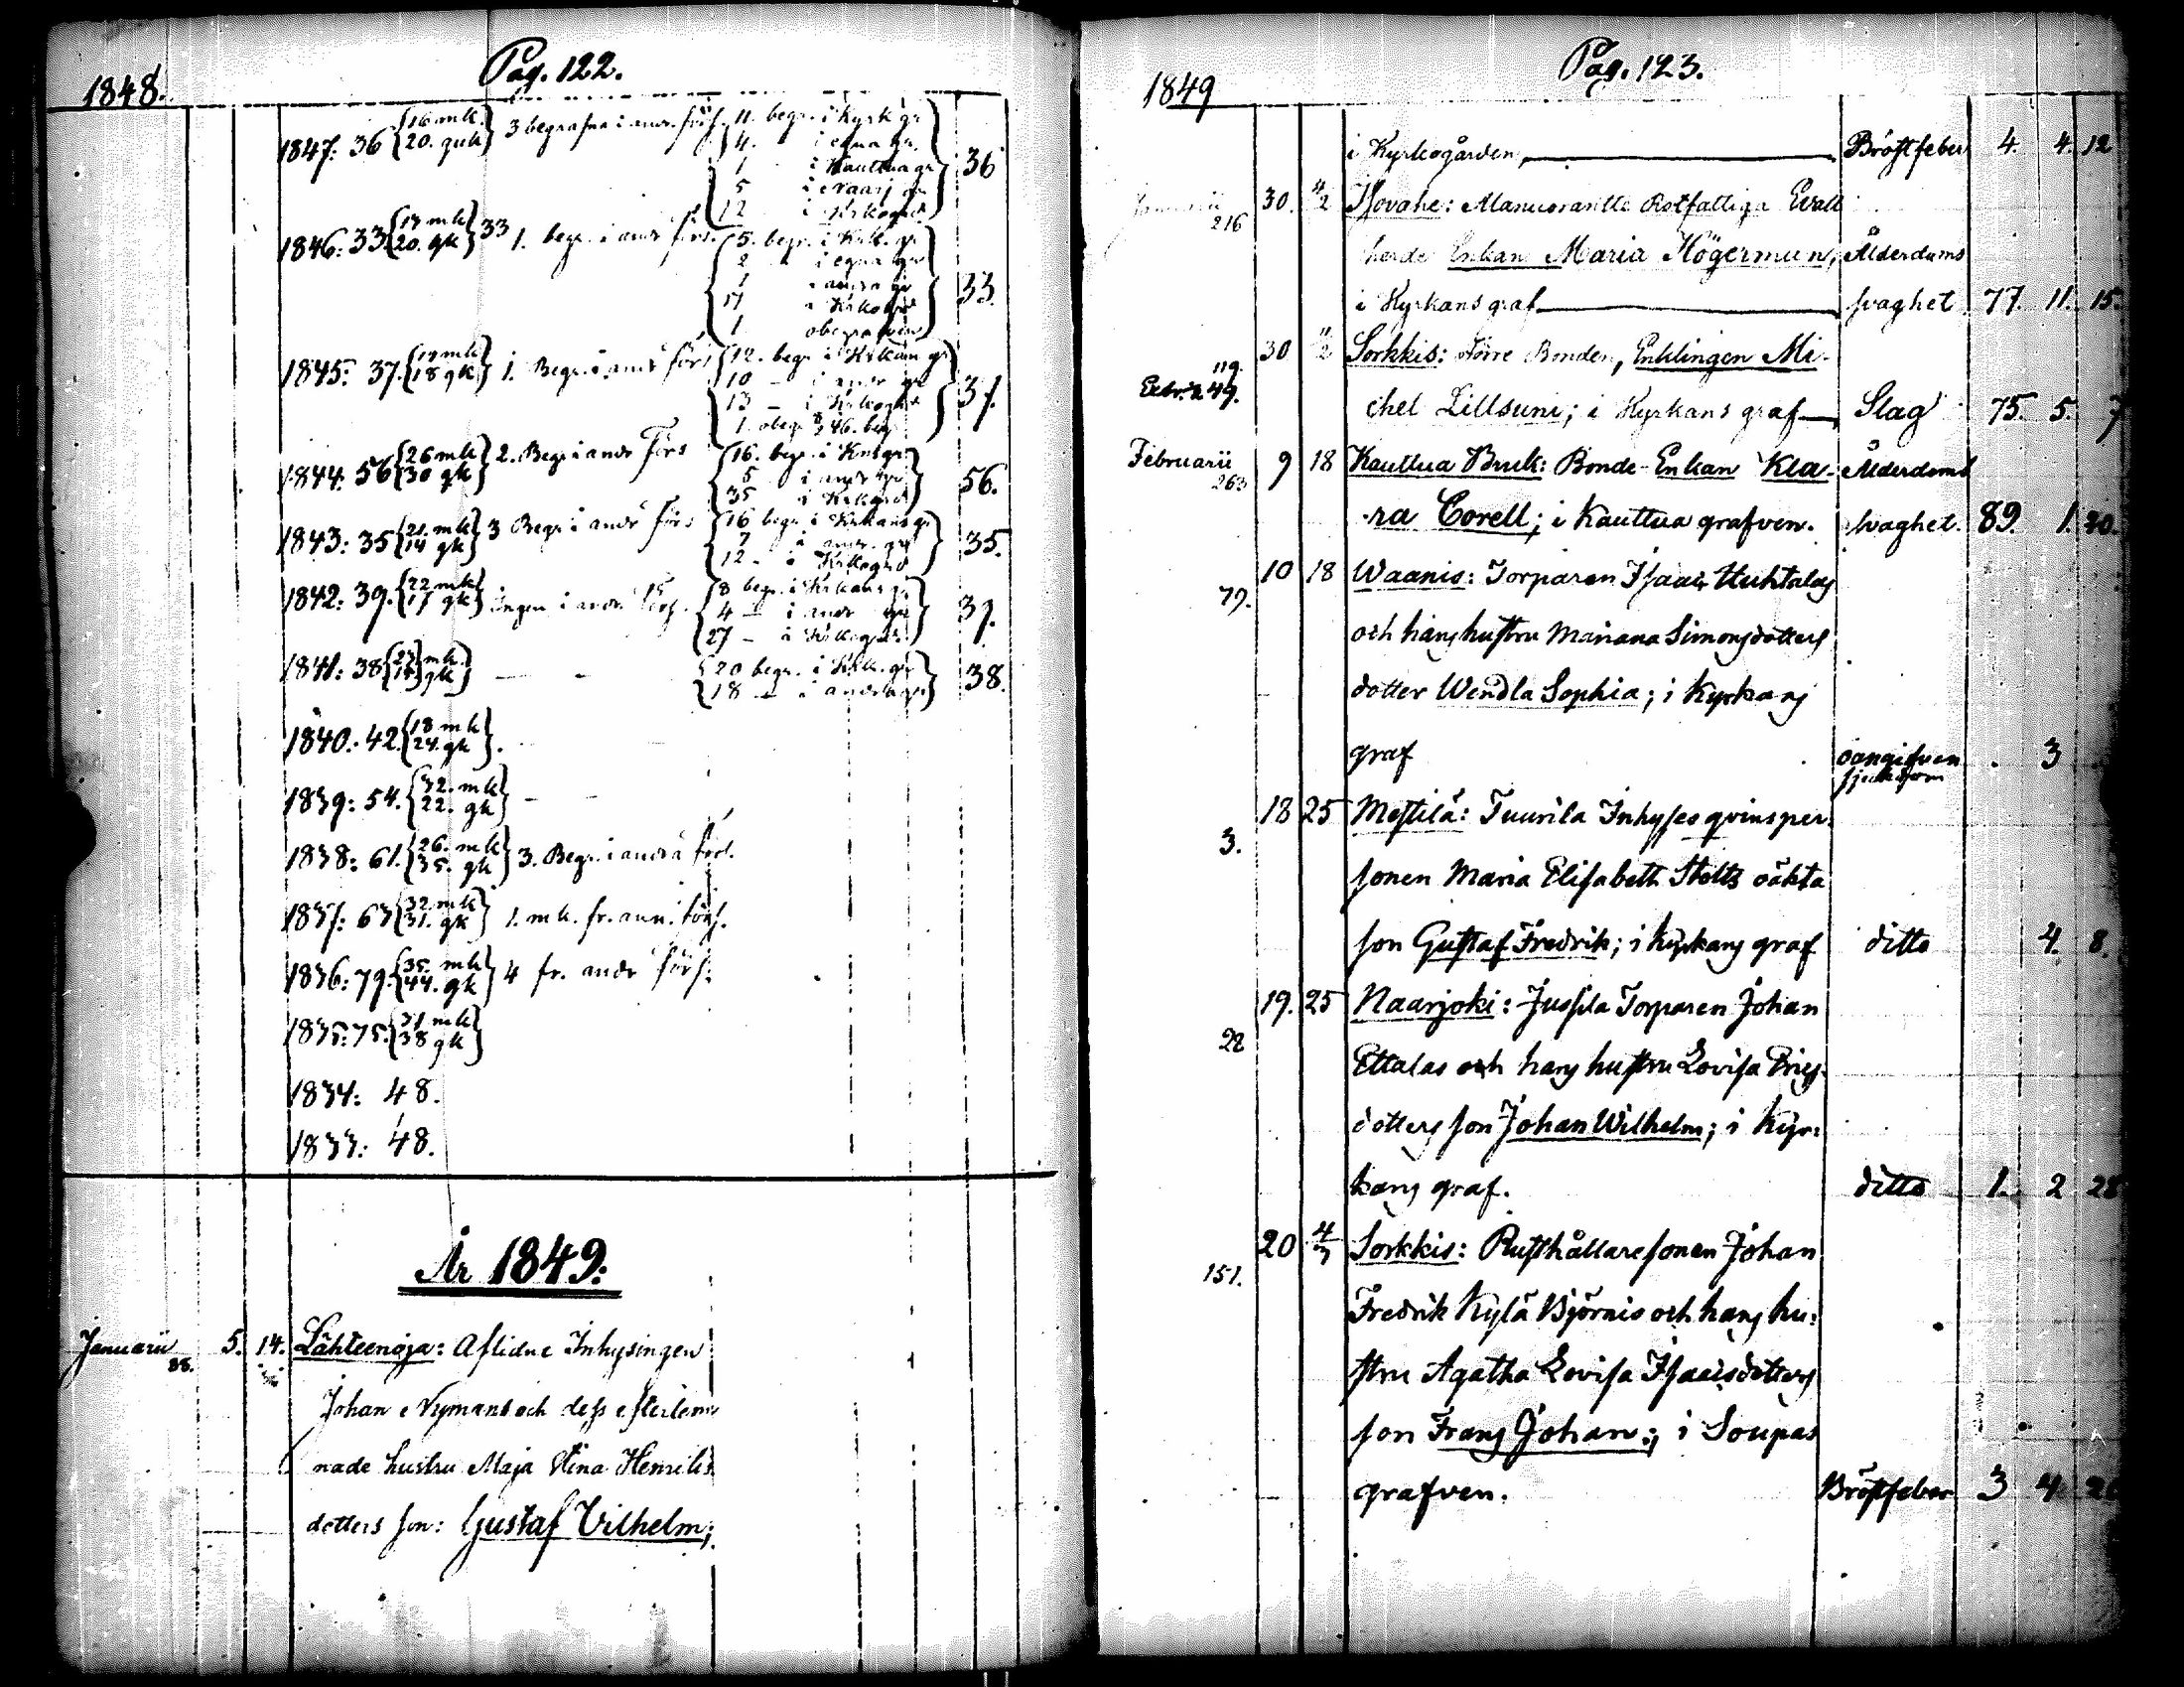 Pag. 122.
1848.
1847: 36 {16 mk. 20. quk} 3 begrafna i andr. förs. {11. begr. i Kyrk gr
4. i egna gr.
1 i Kauttua gr
5 i Naarj gr
12 i Krkogrd} 36
1846: 33 {13 mk 20. gk} 33 1. begr. i andr förs. {5. begr. i Krk. gr
2 i egna gr
1 i andra gr
i Krkogrd
1 obegrafven} 33.
1845: 37. {19 mk 18 gk} 1. Begr. i andr förs {12. begr i Krkan gr
10 — i andr gr
13 — i Krkogrd
1. obegr. 46. begr} 37.
1844: 56 {26 mk 30 gk} 2. Begr i andr Förs {16. begr. i Krk gr
5 i andr gr
35 i Krkogrd} 56.
1843: 35 {21. mk 14 gk} 3 Begr i andr förs {16 begr. i Krkans gr
7 i andr. gr
12 - i Krkogrd} 35.
1842: 39. {22 mk 17 gk} Ingen i andr. förs. {8 begr. i Krkans gr
4 — i andr gr
27 — i Krkogrd} 39.
1841: 38 {mk. gk} — - {20 begr. i Krk. gr
18 — i andra gr} 38.
1840: 42 {18 mk 24. gk}.
1839: 54. {32. mk 22. gk} — —
1838: 61. {26. mk 35. gk} 3. Begr. i andra förs.
1837: 63 {32 mk 31. gk} 1. mk. fr. ann. förs.
1836: 79. {35. mk 44. gk} 4 fr. andr förs.
1835: 75. {37 mk 38 gk}
1834: 48.
1833: 48.
År 1849:
Januarii 88. 5. 14. Lähteenoja: Aflidne Inhysingen
Johan Nymans och dess efterlem
nade hustru Maja Stina Henriks
dotters son: Gustaf Vilhelm;
Pag. 123.
1849
i Kyrkogården, — Bröstfeber 4. 4. 12
Januarii 216 30. 4/2 Isovahe: Rotfattiga
Enkan Maria Högerman, Ålderdoms
i Kyrkans graf — svaghet 77. 11. 15.
119. 30 11/2 Sorkkis: Större Bonden, Enklingen Mi-
49. chel Lillsuni; i Kyrkans graf — Slag 75. 5. 7
Februarii 263 9 18 Kauttua Bruk: Bonde-Enkan Kla- Ålderdoms
ra Corell; i Kauttua grafven. svaghet. 89. 1. 20.
79. 10 18 Waanis: Torparen Isaac Huhtalas
och hans hustru Mariana Simonsdotters
dotter Wendla Sophia; i Kyrkans
graf oangifven sjukdom 3
3. 18 25 Mestilä: Tuurila Inhyses qvinsper-
sonen Maria Elisabeth Stolts oäkta
son Gustaf Fredrik; i Kyrkans graf ditto 4. 8.
22 19. 25 Naarjoki: Jussila Torparen Johan
Ettalas och hans hustru Lovisa Eriks-
dotters son Johan Wilhelm; i Kyr-
kans graf. ditto 1. 2 28
151. 20 4/3 Sorkkis: Rusthållaresonen Johan
Fredrik Kylä Björnis och hans hu-
stru Agatha Lovisa Isaacsdotters
son Frans Johan; i Soupas
grafven. Bröstfeber 3 4